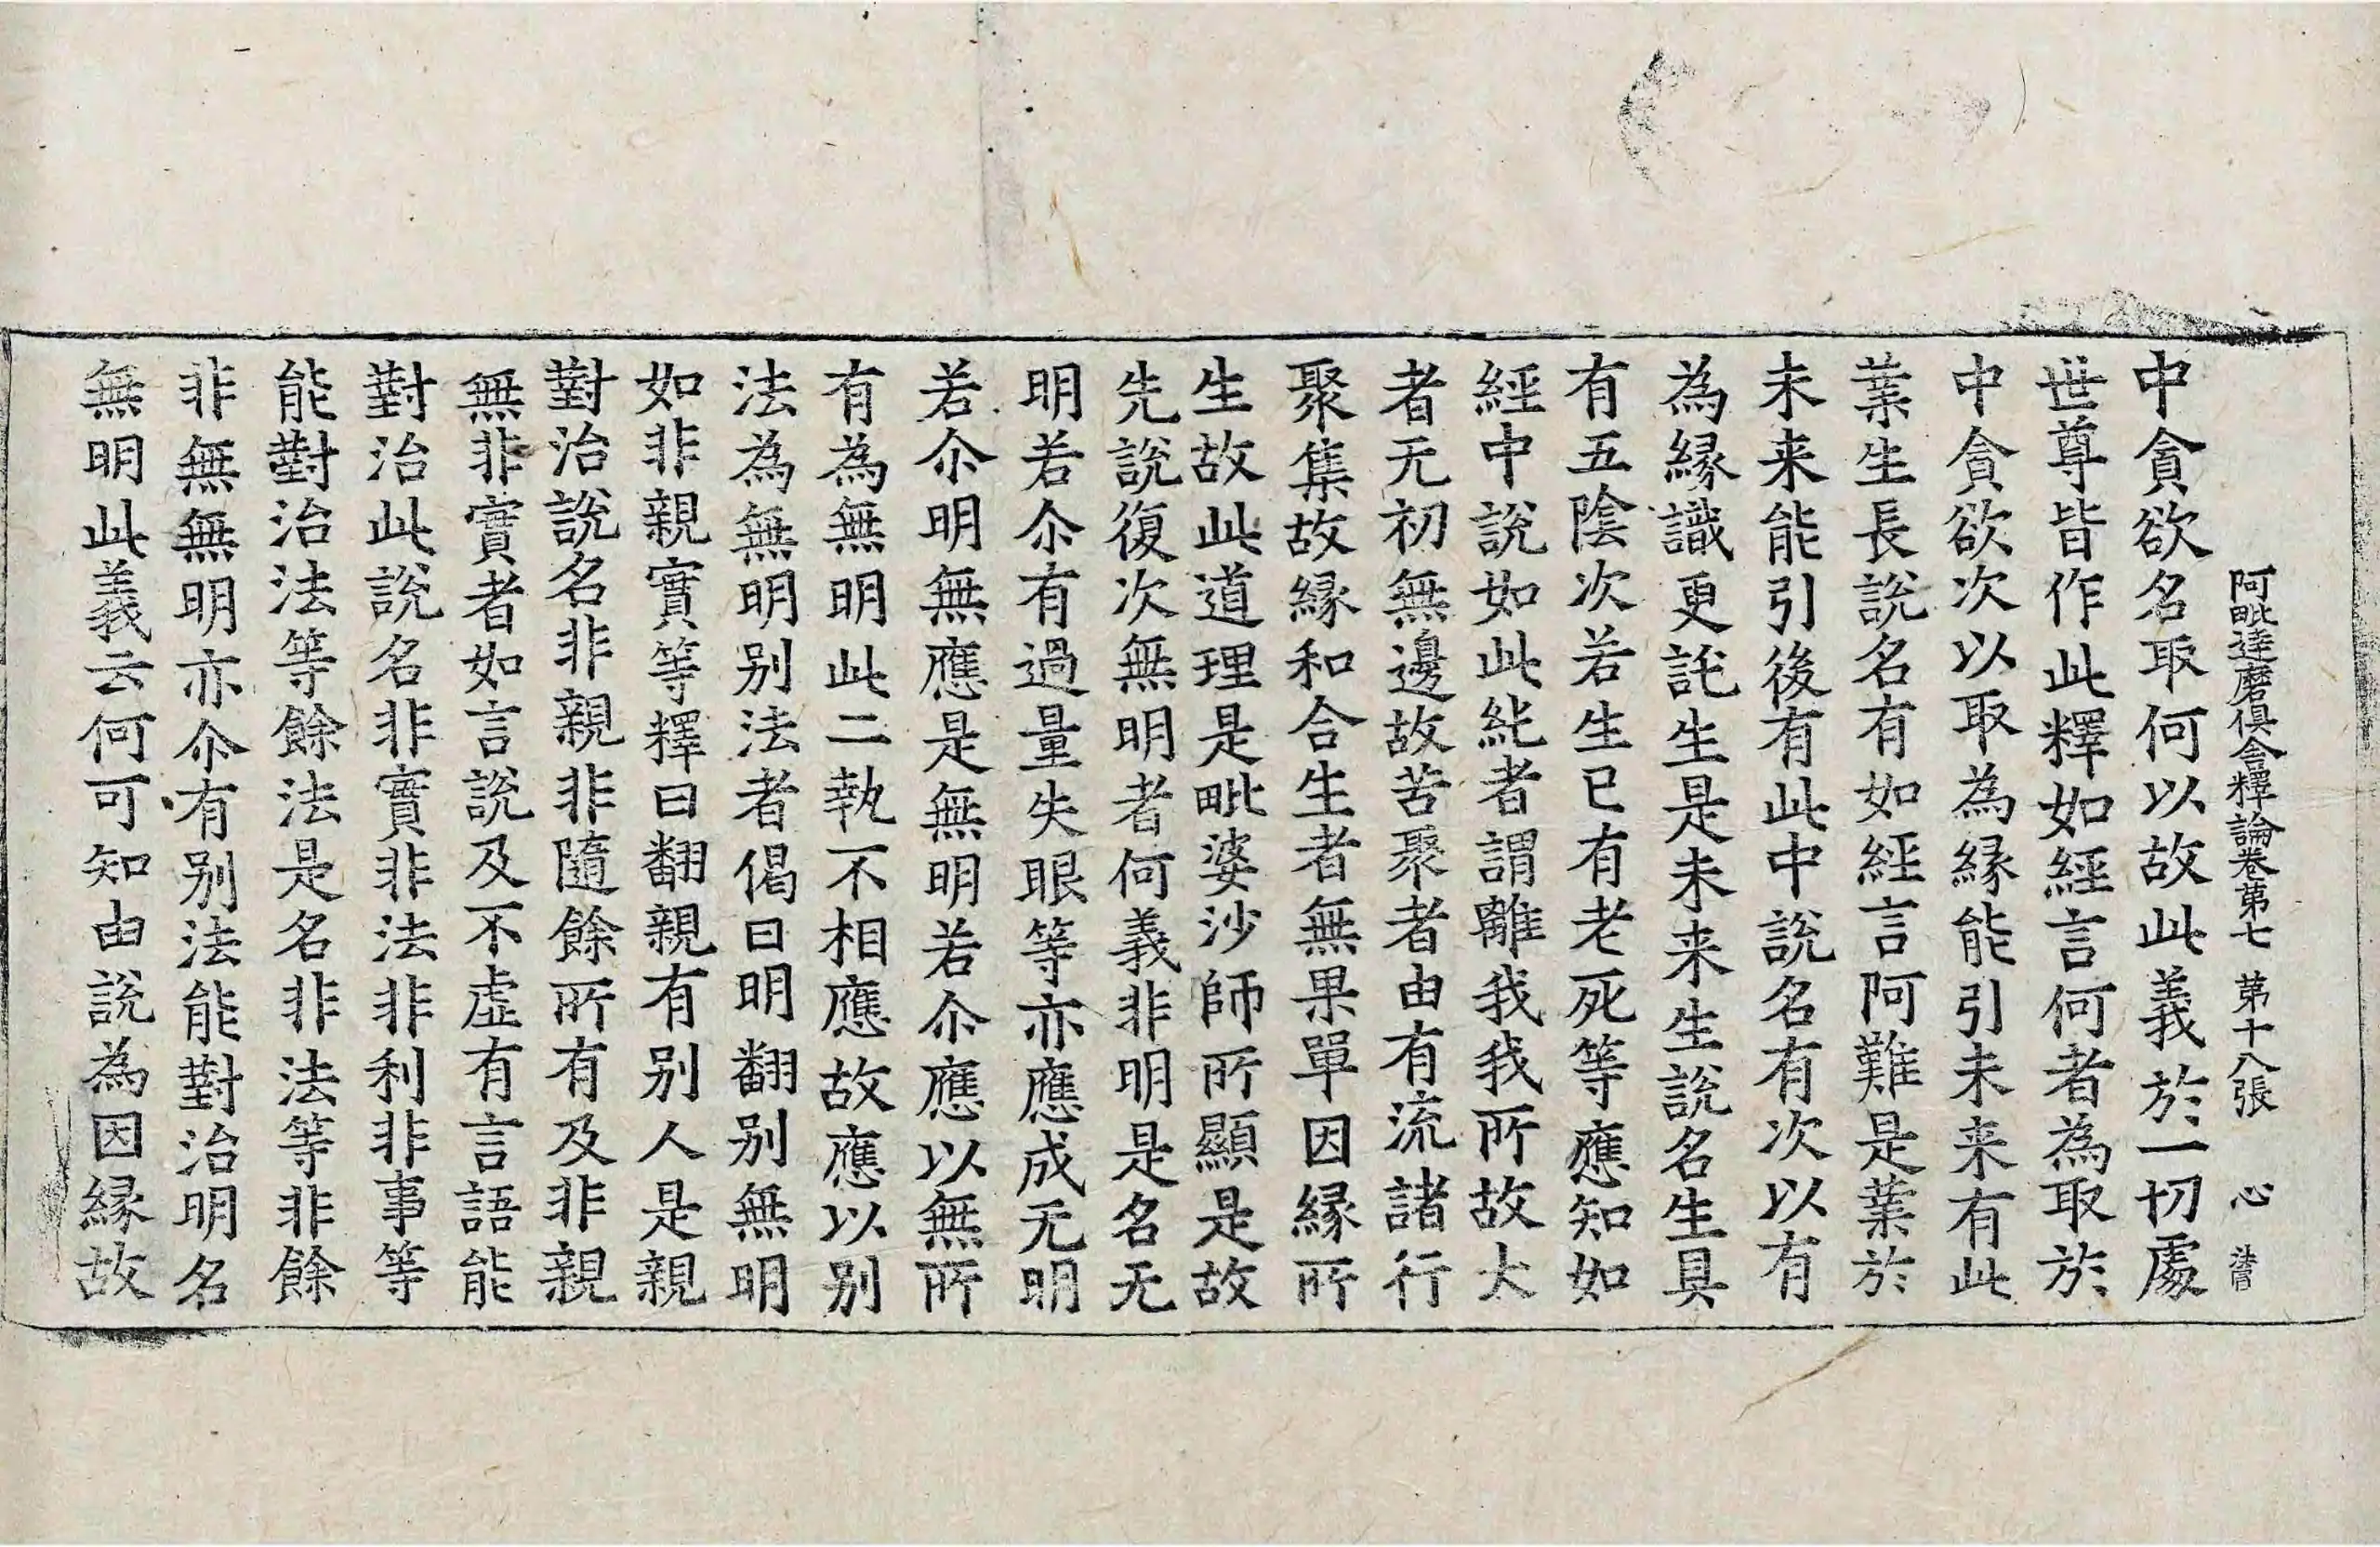 阿毗達磨俱舍釋論卷第七 第十八張 心
中貪欲名取何以故此義於一切處
世尊皆作此釋如經言何者為取於
中貪欲次以取為縁能引未来有此
業生長說名有如經言阿難是業於
未来能引後有此中說名有次以有
為縁識更託生是未来生說名生具
有五陰次若生已有老死等應知如
經中說如此純者謂離我我所故大
者无初無邊故苦聚者由有流諸行
聚集故縁和合生者無果單因縁所
生故此道理是毗婆沙師所顯是故
先說復次無明者何義非明是名无
明若尒有過量失眼等亦應成无明
若尒明無應是無明若尒應以無所
有為無明此二執不相應故應以別
法為無明別法者偈曰明翻別無明
如非親實等釋曰翻親有別人是親
對治說名非親非隨餘所有及非親
無非實者如言說及不虛有言語能
對治此說名非實非法非利非事等
能對治法等餘法是名非法等非餘
非無無明亦尒有別法能對治明名
無明此義云何可知由說為因縁故